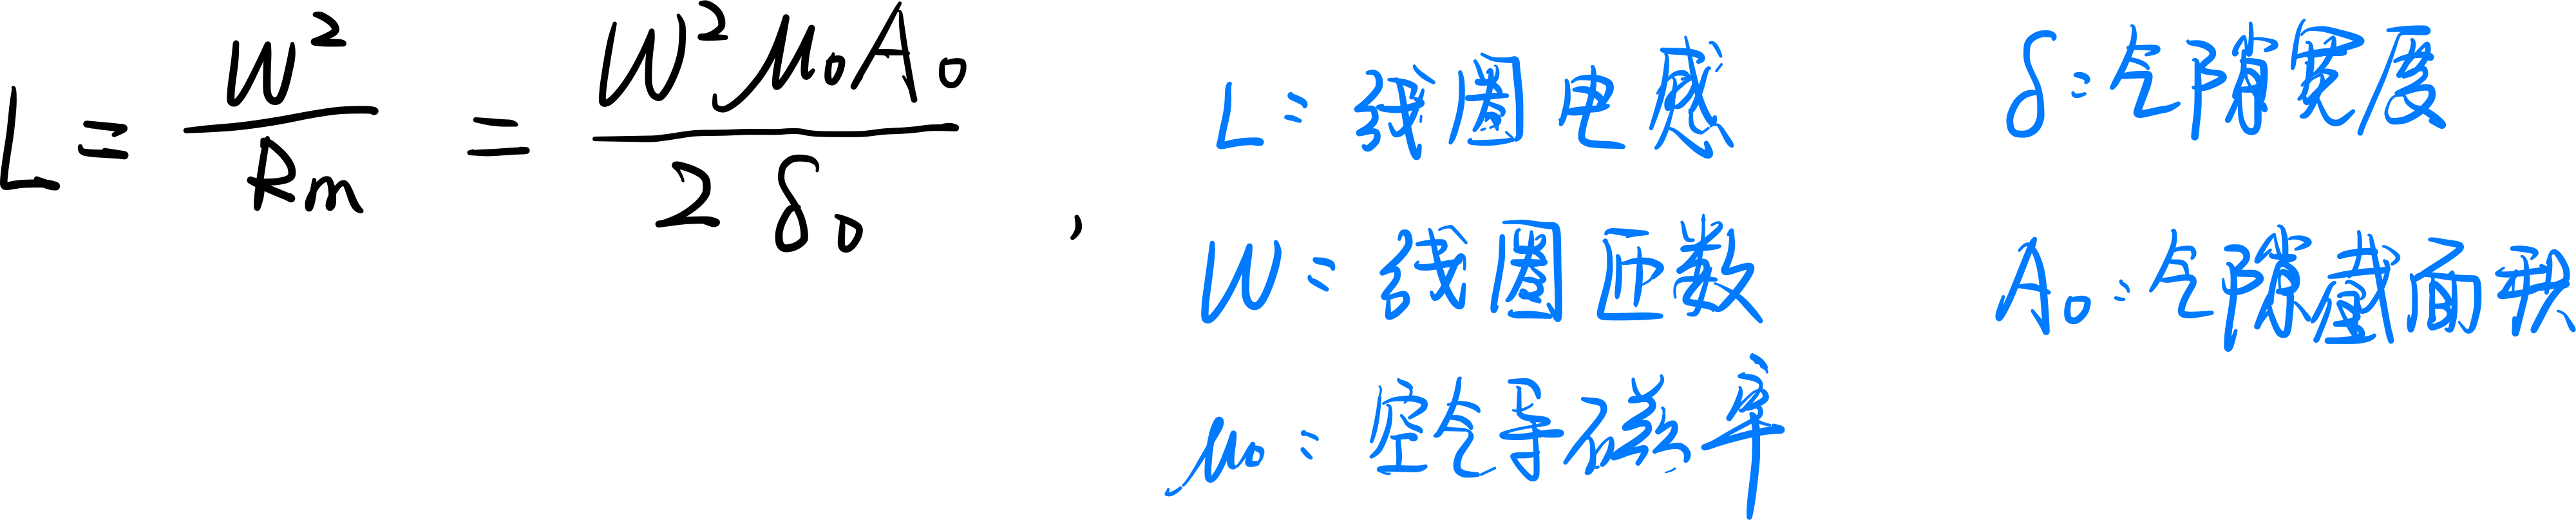 L = W²/Rm = W²μ₀A₀/2δ₀ ,
L: 线圈电感
W: 线圈匝数
μ₀: 空气导磁率
δ: 气隙宽度
A₀: 气隙截面积